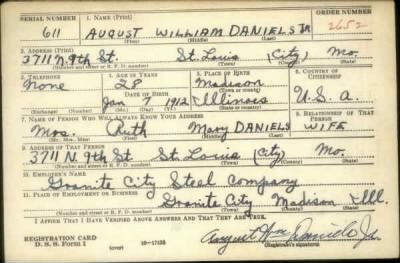 SERIAL NUMBER 1. NAME (Print) ORDER NUMBER
611 AUGUST WILLIAM DANIELS JR 2652
(First) (Middle) (Last)
2. ADDRESS (Print)
3711 N. 9th St. St. Louis (City) Mo.
(Number and street or R. F. D. number) (Town) (County) (State)
3. TELEPHONE 4. AGE IN YEARS 5. PLACE OF BIRTH 6. COUNTRY OF CITIZENSHIP
None 28 Madison
DATE OF BIRTH (Town or county)
Jan 7 1912 Illinois U.S.A.
(Exchange) (Number) (Mo.) (Day) (Yr.) (State or country)
7. NAME OF PERSON WHO WILL ALWAYS KNOW YOUR ADDRESS 8. RELATIONSHIP OF THAT PERSON
Mrs. Ruth Mary DANIELS WIFE
(Mr., Mrs., Miss) (First) (Middle) (Last)
9. ADDRESS OF THAT PERSON
3711 N. 9th St St. Louis (City) Mo.
(Number and street or R. F. D. number) (Town) (County) (State)
10. EMPLOYER'S NAME
Granite City Steel Company
11. PLACE OF EMPLOYMENT OR BUSINESS
Granite City Madison Ill.
(Number and street or R. F. D. number) (Town) (County) (State)
I AFFIRM THAT I HAVE VERIFIED ABOVE ANSWERS AND THAT THEY ARE TRUE.
REGISTRATION CARD
D. S. S. Form 1 (over) 16—17105 August Wm Daniels Jr.
(Registrant's signature)